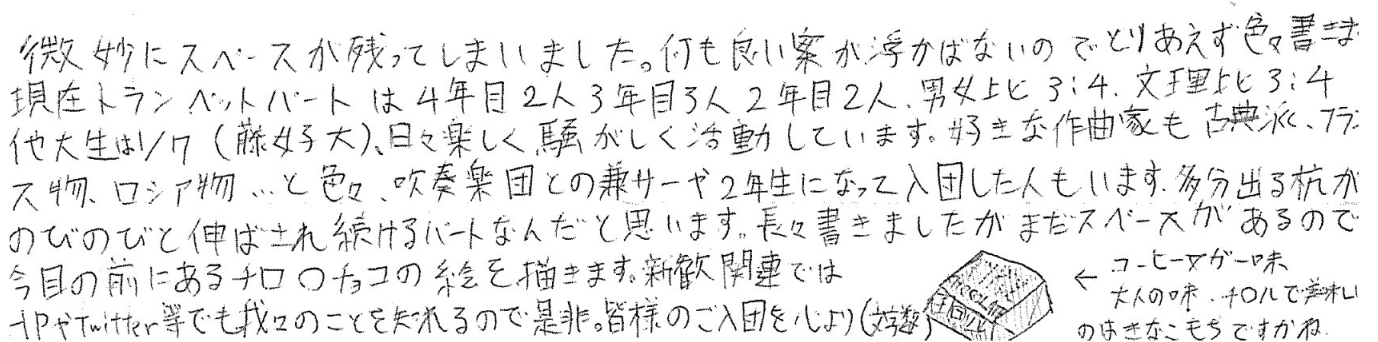 微妙にスペースが残ってしまいました。何も良い案が浮かばないのでとりあえず色々書きま
現在トランペットパートは4年目2人3年目3人2年目2人、男女比3:4、文理比3:4
他大生は1/7(藤女子大)、日々楽しく騒がしく活動しています。好きな作曲家も古典派、フラン
ス物、ロシア物…と色々、吹奏楽団との兼サーや2年生になって入団した人もいます。多分出る杭が
のびのびと伸ばされ続けるパートなんだと思います。長々書きましたがまだスペースがあるので
今目の前にあるチロ〇チョコの絵を描きます。新歓関連では
HPやTwitter等でも我々のことを知れるので是非。皆様のご入団を心より(文字数)
チロル
← コーヒーヌガー味、
大人の味。チロルで美味しい
のはきなこもちですかね。